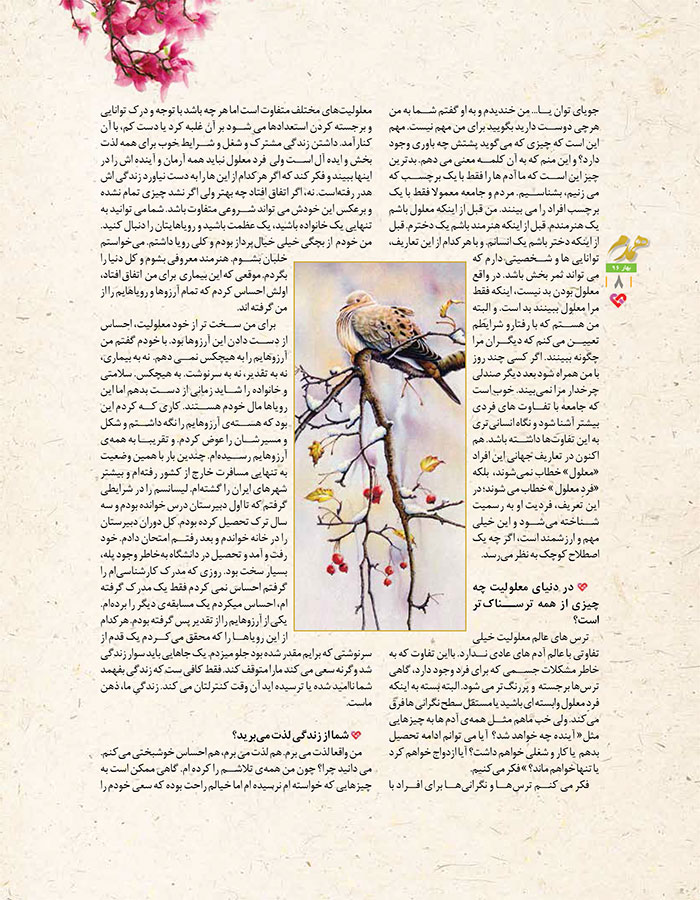 جویای توان یا... من خندیدم و به او گفتم شما به من
هرچی دوست دارید بگویید برای من مهم نیست. مهم
این است که چیزی که می‌گوید پشتش چه باوری وجود
دارد؟ و این منم که به آن کلمه معنی می دهم. بدترین
چیز این است که ما آدم ها را فقط با یک برچسب که
می زنیم، بشناسیم. مردم و جامعه معمولا فقط با یک
برچسب افراد را می بینند. من قبل از اینکه معلول باشم
یک هنرمندم. قبل از اینکه هنرمند باشم یک دخترم. قبل
از اینکه دختر باشم یک انسانم. و با هر کدام از این تعاریف،
توانایی ها و شخصیتی دارم که
می تواند ثمر بخش باشد. در واقع
معلول بودن بد نیست، اینکه فقط
مرا معلول ببینند بد است. و البته
من هستم که با رفتار و شرایطم
تعیین می‌کنم که دیگران مرا
چگونه ببینند. اگر کسی چند روز
با من همراه شود بعد دیگر صندلی
چرخدار مرا نمی‌بیند. خوب است
که جامعه با تفاوت های فردی
بیشتر آشنا شود و نگاه انسانی‌تری
به این تفاوت‌ها داشته باشد. هم
اکنون در تعاریف جهانی این افراد
«معلول» خطاب نمی‌شوند، بلکه
«فرد معلول» خطاب می شوند؛ در
این تعریف، فردیت او به رسمیت
شناخته می‌شود و این خیلی
مهم و ارزشمند است، اگر چه یک
اصطلاح کوچک به نظر می‌رسد.
در دنیای معلولیت چه
چیزی از همه ترسناک‌تر
است؟
ترس های عالم معلولیت خیلی
تفاوتی با عالم آدم های عادی ندارد. با این تفاوت که به
خاطر مشکلات جسمی که برای فرد وجود دارد، گاهی
ترس‌ها برجسته و پررنگ‌تر می شود. البته بسته به اینکه
فرد معلول وابسته ای باشید یا مستقل سطح نگرانی ها فرق
می‌کند. ولی خب ما هم مثل همه‌ی آدم ها به چیزهایی
مثل « آینده چه خواهد شد؟ آیا می توانم ادامه تحصیل
بدهم یا کار و شغلی خواهم داشت؟ آیا ازدواج خواهم کرد
یا تنها خواهم ماند؟ » فکر می‌کنیم.
فکر می کنم ترس‌ها و نگرانی‌ها برای افراد با
معلولیت‌های مختلف متفاوت است اما هر چه باشد با توجه و درک توانایی
و برجسته کردن استعدادها می شود بر آن غلبه کرد یا دست کم، با آن
کنار آمد. داشتن زندگی مشترک و شغل و شرایط خوب برای همه لذت
بخش و ایده آل است ولی فرد معلول نباید همه آرمان و آینده اش را در
اینها ببیند و فکر کند که اگر هر کدام از این ها را به دست نیاورد زندگی اش
هدر رفته است. نه، اگر اتفاق افتاد چه بهتر ولی اگر نشد چیزی تمام نشده
و برعکس این خودش می تواند شروعی متفاوت باشد. شما می توانید به
تنهایی یک خانواده باشید، یک عظمت باشید و رویاهایتان را دنبال کنید.
من خودم از بچگی خیلی خیال‌پرداز بودم و کلی رویا داشتم. می‌خواستم
خلبان بشوم. هنرمند معروفی بشوم و کل دنیا را
بگردم. موقعی که این بیماری برای من اتفاق افتاد،
اولش احساس کردم که تمام آرزوها و رویاهایم را از
من گرفته اند.
برای من سخت تر از خود معلولیت، احساس
از دست دادن این آرزوها بود. با خودم گفتم من
آرزوهایم را به هیچکس نمی دهم. نه به بیماری،
نه به تقدیر، نه به سرنوشت. به هیچکس. سلامتی
و خانواده را شاید زمانی از دست بدهم اما این
رویاها مال خودم هستند. کاری که کردم این
بود که هسته‌ی آرزوهایم را نگه داشتم و شکل
و مسیرشان را عوض کردم. و تقریبا به همه‌ی
آرزوهایم رسیده‌ام. چندین بار با همین وضعیت
به تنهایی مسافرت خارج از کشور رفته‌ام و بیشتر
شهرهای ایران را گشته‌ام. لیسانسم را در شرایطی
گرفتم که تا اول دبیرستان درس خوانده بودم و سه
سال ترک تحصیل کرده بودم. کل دوران دبیرستان
را در خانه خواندم و بعد رفتم امتحان دادم. خود
رفت و آمد و تحصیل در دانشگاه به خاطر وجود پله،
بسیار سخت بود. روزی که مدرک کارشناسی‌ام را
گرفتم احساس نمی کردم فقط یک مدرک گرفته
ام، احساس میکردم یک مسابقه‌ی دیگر را برده‌ام.
یکی از آرزوهایم را از تقدیر پس گرفته بودم. هر کدام
از این رویاها را که محقق می‌کردم یک قدم از
سرنوشتی که برایم مقدر شده بود جلو میزدم. یک جاهایی باید سوار زندگی
شد و گرنه سعی می کند مارا متوقف کند. فقط کافی ست که زندگی بفهمد
شما ناامید شده یا ترسیده اید آن وقت کنترلتان می کند. زندگی ما، ذهن
ماست.
شما از زندگی لذت می‌برید؟
من واقعا لذت می برم. هم لذت می برم، هم احساس خوشبختی می کنم.
می دانید چرا؟ چون من همه‌ی تلاشم را کرده ام. گاهی ممکن است به
چیزهایی که خواسته ام نرسیده ام اما خیالم راحت بوده که سعی خودم را
همدم
بهار ۹۶
۸